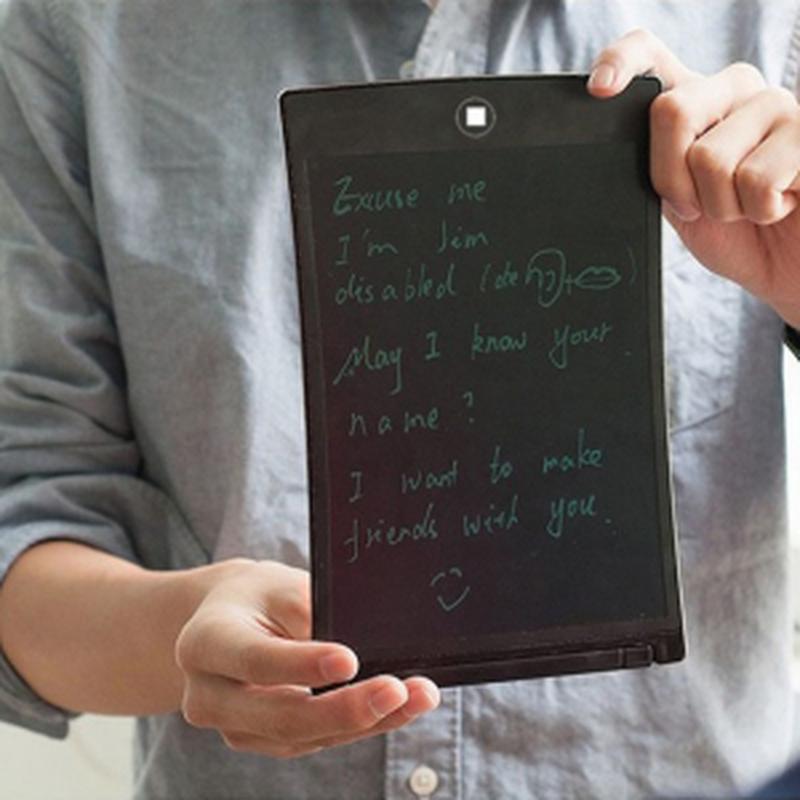 Excuse me
I'm Jim
disabled (de
May I know your
name?
I want to make
friends with you.